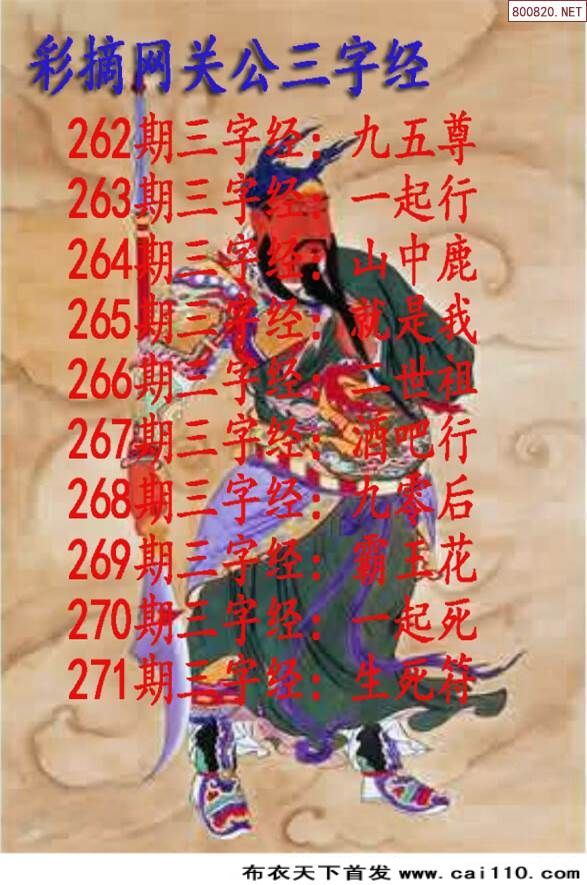 800820.NET
彩摘网关公三字经
262期三字经：九五尊
263期三字经：一起行
264期三字经：山中鹿
265期三字经：就是我
266期三字经：二世祖
267期三字经：酒吧行
268期三字经：九零后
269期三字经：霸王花
270期三字经：一起死
271期三字经：生死符
布衣天下首发 www.cai110.com